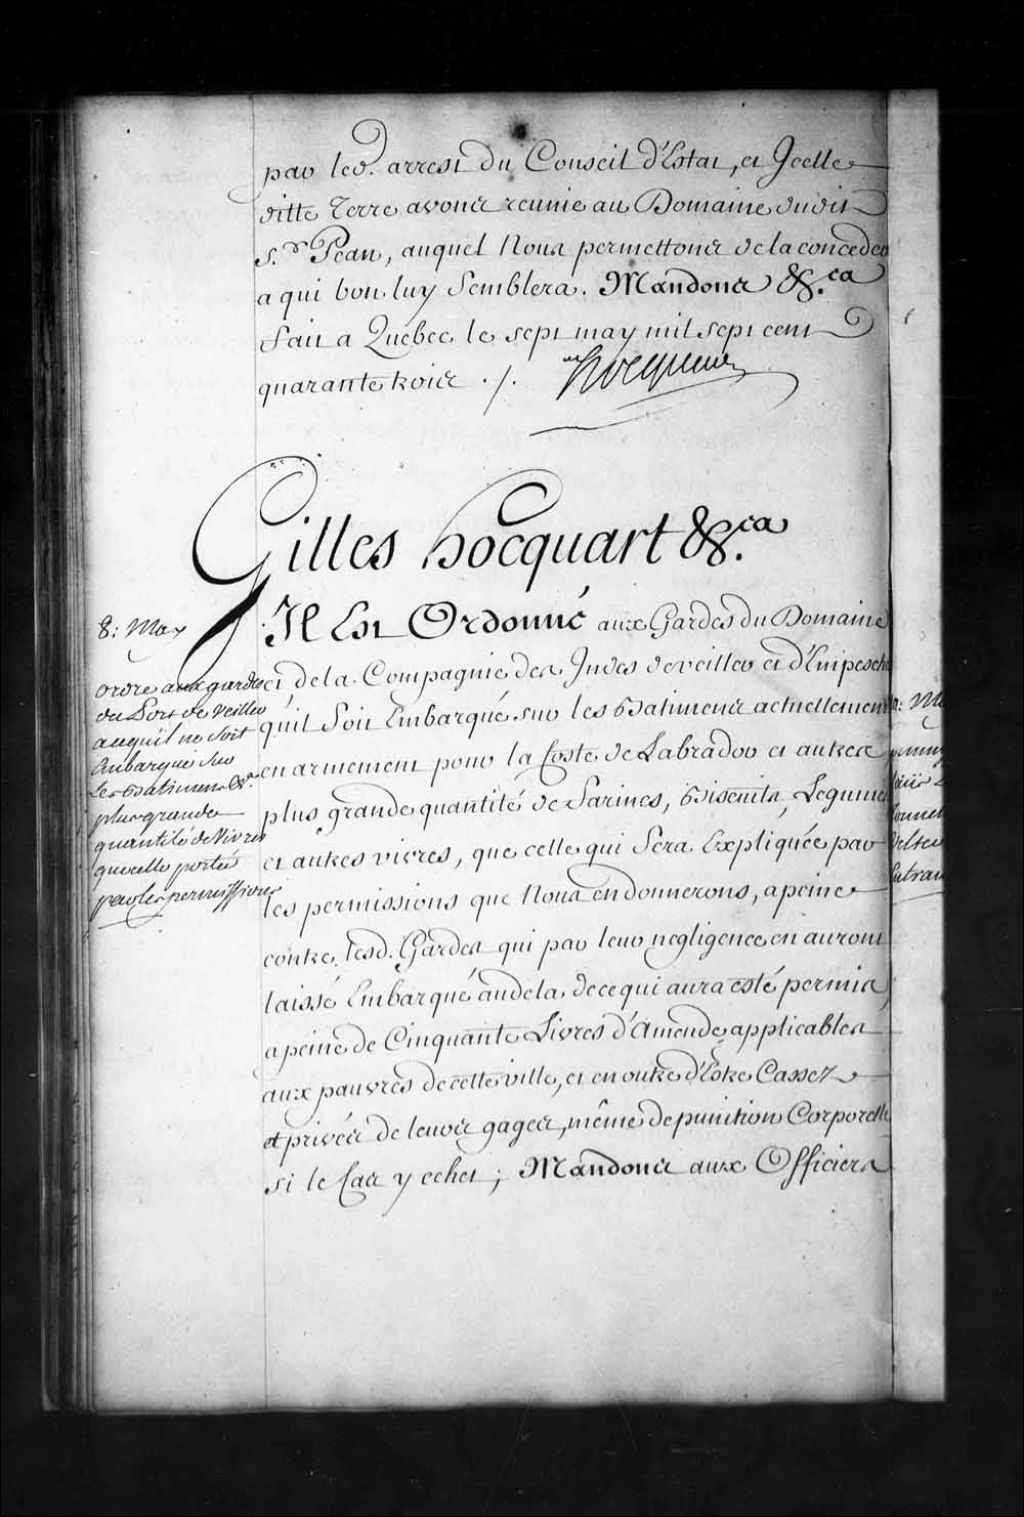 par led. arrest du Conseil d'Estat, et Jcelle
ditte Terre avons reunie au Domaine dudit
S.r Pean, auquel Nous permettons de la conceder
a qui bon luy Semblera. Mandons &.ca
Fait a Quebec le sept may mil sept cent
quarante trois ./. Hocquart
Gilles hocquart &.ca
8: May
ordre aux gardes
du Port de veiller
a ce qu'il ne soit
Embarqué sur
les Batimens &a.
plus grande
quantité de Vivres
que celle portée
par les permissions
Il Est Ordonné aux Gardes du Domaine
et de la Compagnie des Indes de veiller et d'Empescher
quil Soit Embarqué sur les Batimens actuellement
en armement pour la Coste de Labrador et autres
plus grande quantité de Farines, Biscuits, Legumes
et autres vivres, que celle qui Sera Expliquée par
les permissions que Nous en donnerons, a peine
contre lesd. Gardes qui par leur negligence en auront
laissé Embarqué au dela de ce qui aura esté permis,
a peine de Cinquante Livres d'Amende applicables
aux pauvres de cette ville, et en outre d'Estre Cassez
et privés de leurs gages, même de punition Corporelle
si le Cas y echet; Mandons aux Officiers